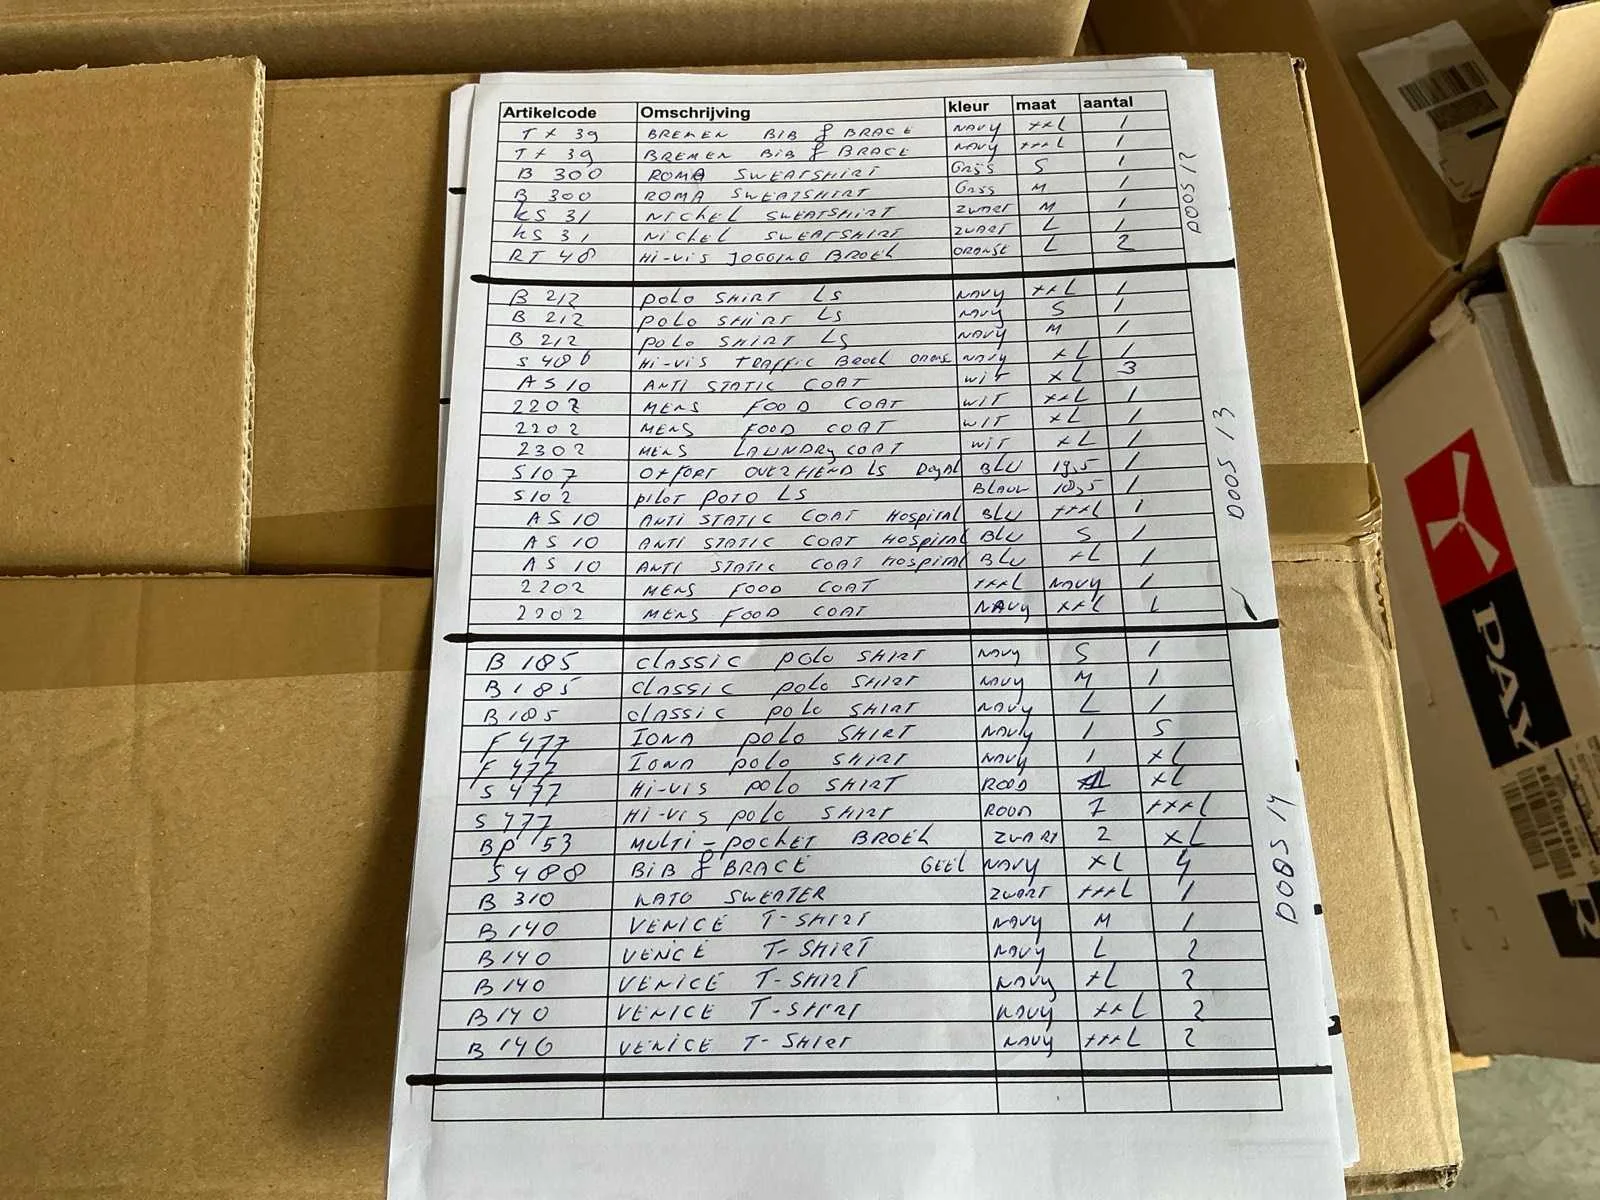 Artikelcode Omschrijving kleur maat aantal
TX 39 BREMEN BIB & BRACE NAVY XXL 1
TX 39 BREMEN BIB & BRACE NAVY XXXL 1
B 300 ROMA SWEATSHIRT GRIJS S 1
B 300 ROMA SWEATSHIRT M 1
KS 31 NICKEL SWEATSHIRT ZWART M 1
KS 31 NICKEL SWEATSHIRT ZWART L 1
RT 48 Hi-Vis JOGGING BROEK ORANJE L 2
D005 12
B 212 POLO SHIRT LS NAVY XXL 1
B 212 POLO SHIRT LS NAVY S 1
B 212 POLO SHIRT LS NAVY M 1
S 486 Hi-Vis TRAFFIC Broek NAVY XL 1
AS 10 ANTI STATIC COAT WIT XL 3
2202 MENS FOOD COAT WIT XXL 1
2202 MENS FOOD COAT WIT XL 1
2302 MENS LAUNDRY COAT WIT XL 1
S107 LS BLU 19,5 1
S102 PILOT LS BLAUW 18,5 1
AS 10 ANTI STATIC COAT Hospital BLU XXXL 1
AS 10 ANTI STATIC COAT Hospital BLU S 1
AS 10 ANTI STATIC COAT Hospital BLU XL 1
2202 MENS FOOD COAT XXXL NAVY 1
2202 MENS FOOD COAT NAVY XXL 1
D005 13
B 185 CLASSIC POLO SHIRT NAVY S 1
B 185 CLASSIC POLO SHIRT NAVY M 1
B 185 CLASSIC POLO SHIRT NAVY L 1
F 477 IONA POLO SHIRT NAVY 1 S
F 477 IONA POLO SHIRT NAVY 1 XL
S 477 Hi-Vis POLO SHIRT ROOD XL
S 477 Hi-Vis POLO SHIRT ROOD 1 XXXL
BP 53 MULTI-POCKET BROEK ZWART 2 XL
S 488 BIB & BRACE GEEL NAVY XL 4
B 310 NATO SWEATER ZWART XXXL 1
B 140 VENICE T-SHIRT NAVY M 1
B 140 VENCE T-SHIRT NAVY L 2
B 140 VENICE T-SHIRT NAVY XL 2
B 140 VENICE T-SHIRT NAVY XXL 2
B 140 VENICE T-SHIRT NAVY XXXL 2
D005 14
DAY
R